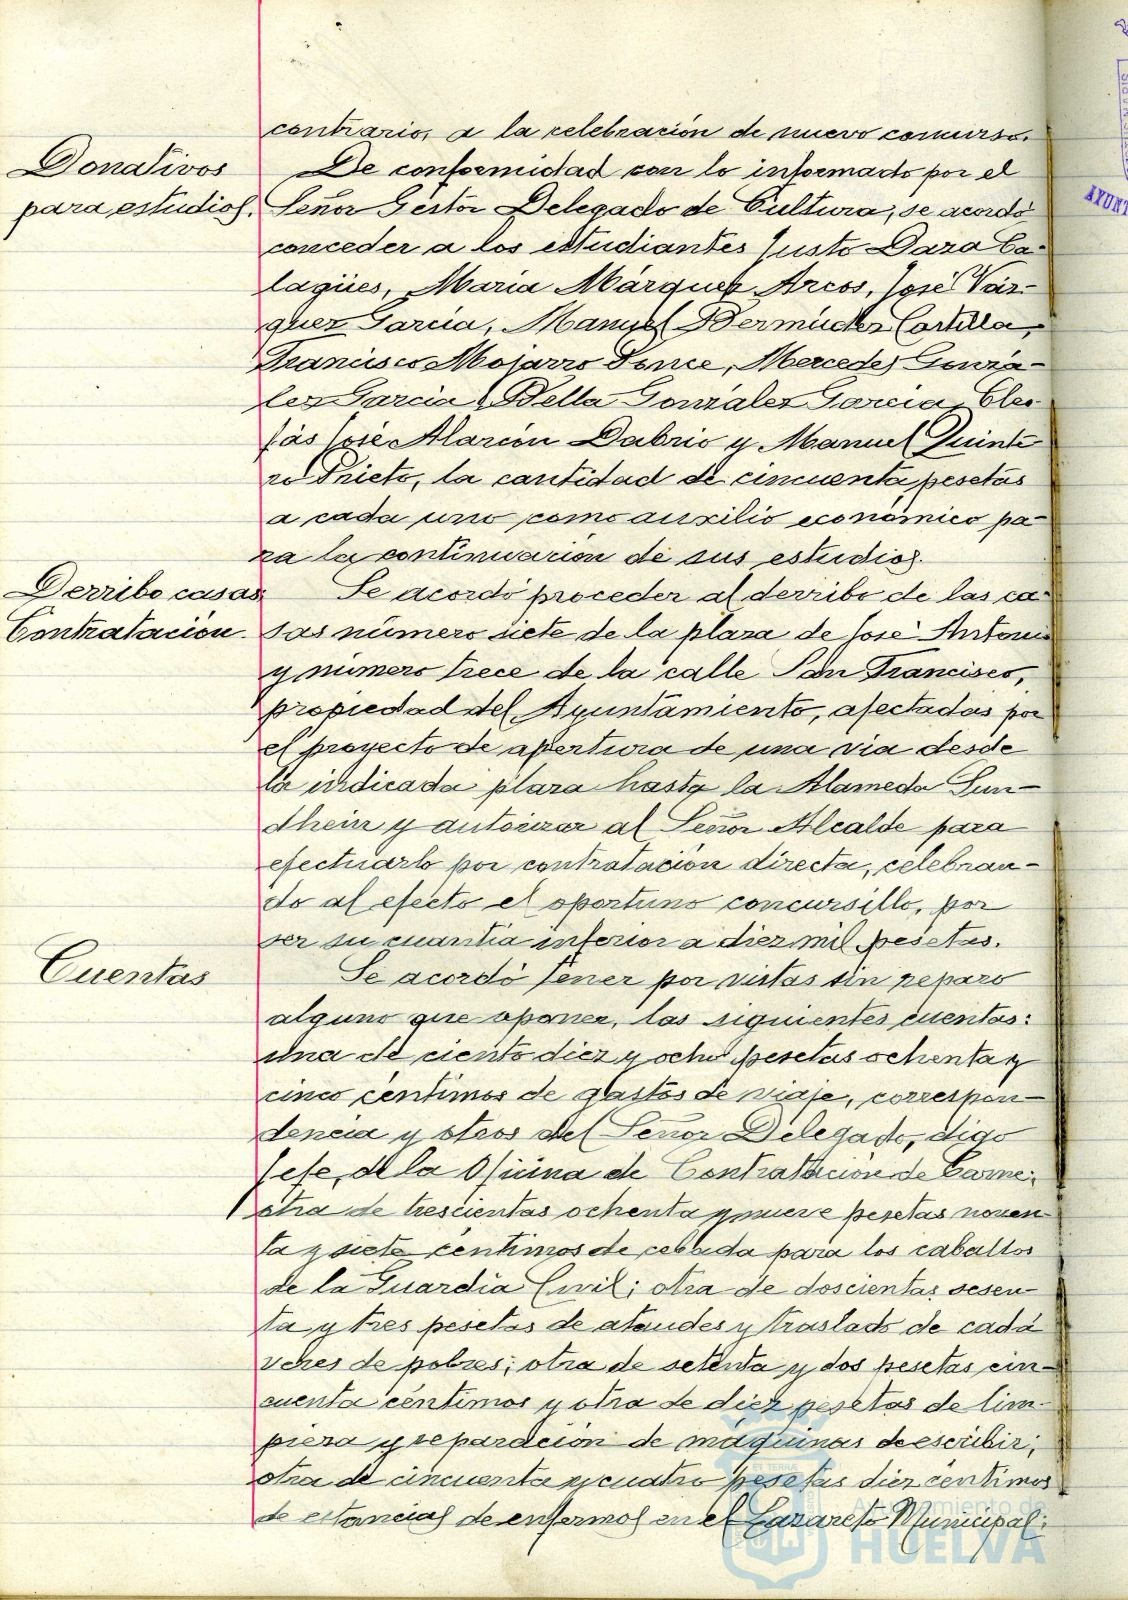 contrario, a la celebración de nuevo concurso.
Donativos
para estudios.
De conformidad con lo informado por el
Señor Gestor Delegado de Cultura, se acordó
conceder a los estudiantes Justo Daza Ca-
lagües, María Márquez Arcos, José Váz-
quez García, Manuel Bermúdez Castilla,
Francisco Mojarro Ponce, Mercedes Gonzá-
lez García, Bella González García,
José Alarcón Dabrio y Manuel Quinte
ro Prieto, la cantidad de cincuenta pesetas
a cada uno como auxilio económico pa-
ra la continuación de sus estudios.
Derribo casas
Contratación
Se acordó proceder al derribo de las ca-
sas número siete de la plaza de José Antonio
y número trece de la calle San Francisco,
propiedad del Ayuntamiento, afectadas por
el proyecto de apertura de una via desde
la indicada plaza hasta la Alameda Sun-
dhein y autorizar al Señor Alcalde para
efectuarlo por contratación directa, celebran-
do al efecto el oportuno concursillo, por
ser su cuantía inferior a diez mil pesetas.
Cuentas
Se acordó tener por vistas sin reparo
alguno que oponer, las siguientes cuentas:
una de ciento diez y ocho pesetas ochenta y
cinco céntimos de gastos de viaje, correspon-
dencia y otros del Señor Delegado, digo
Jefe, de la Oficina de Contratación de Carne;
otra de trescientas ochenta y nueve pesetas noven-
ta y siete céntimos de cebada para los caballos
de la Guardia Civil; otra de doscientas sesen-
ta y tres pesetas de ataudes y traslado de cadá
veres de pobres; otra de setenta y dos pesetas cin-
cuenta céntimos y otra de diez pesetas de lim-
pieza y reparación de máquinas de escribir;
otra de cincuenta y cuatro pesetas diez céntimos
de estancias de enfermos en el Lazareto Municipal;
Ayuntamiento de
HUELVA